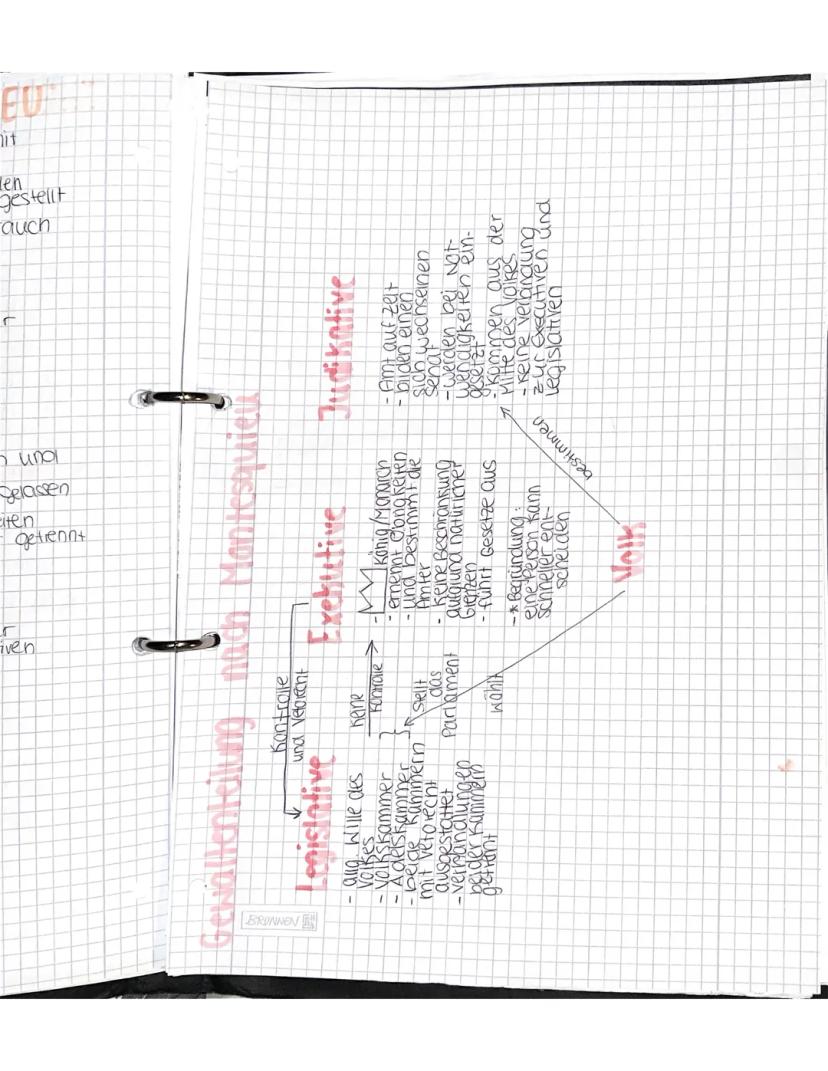 EU
mit
gestellt
auch
r
und
gelassen
getrennt
r
iven
Gewaltenteilung nach Montesquieu
Kontrolle
und Vetorecht
Legislative
- allg. Wille des
Volkes
- Volkskammer
- Adelskammer
- beide Kammern
mit Vetorecht
ausgestattet
- Verhandlungen
beider Kammern
getrennt
keine
Kontrolle
stellt
das
Parlament
wählt
Exekutive
- König/Monarch
- ernennt
und bestimmt die
Ämter
- keine Beschränkung
aufgrund natürlicher
Grenzen
- führt Gesetze aus
-* Begründung:
eine Person kann
schneller ent-
scheiden
Judikative
- Amt auf Zeit
- bilden einen
sich wechselnen
Senat
- werden bei Not-
wendigkeiten ein-
gesetzt
- kommen aus der
Mitte des Volkes
- keine Verbindung
zur Executiven und
Legislativen
bestimmen
Volk
BRUNNEN